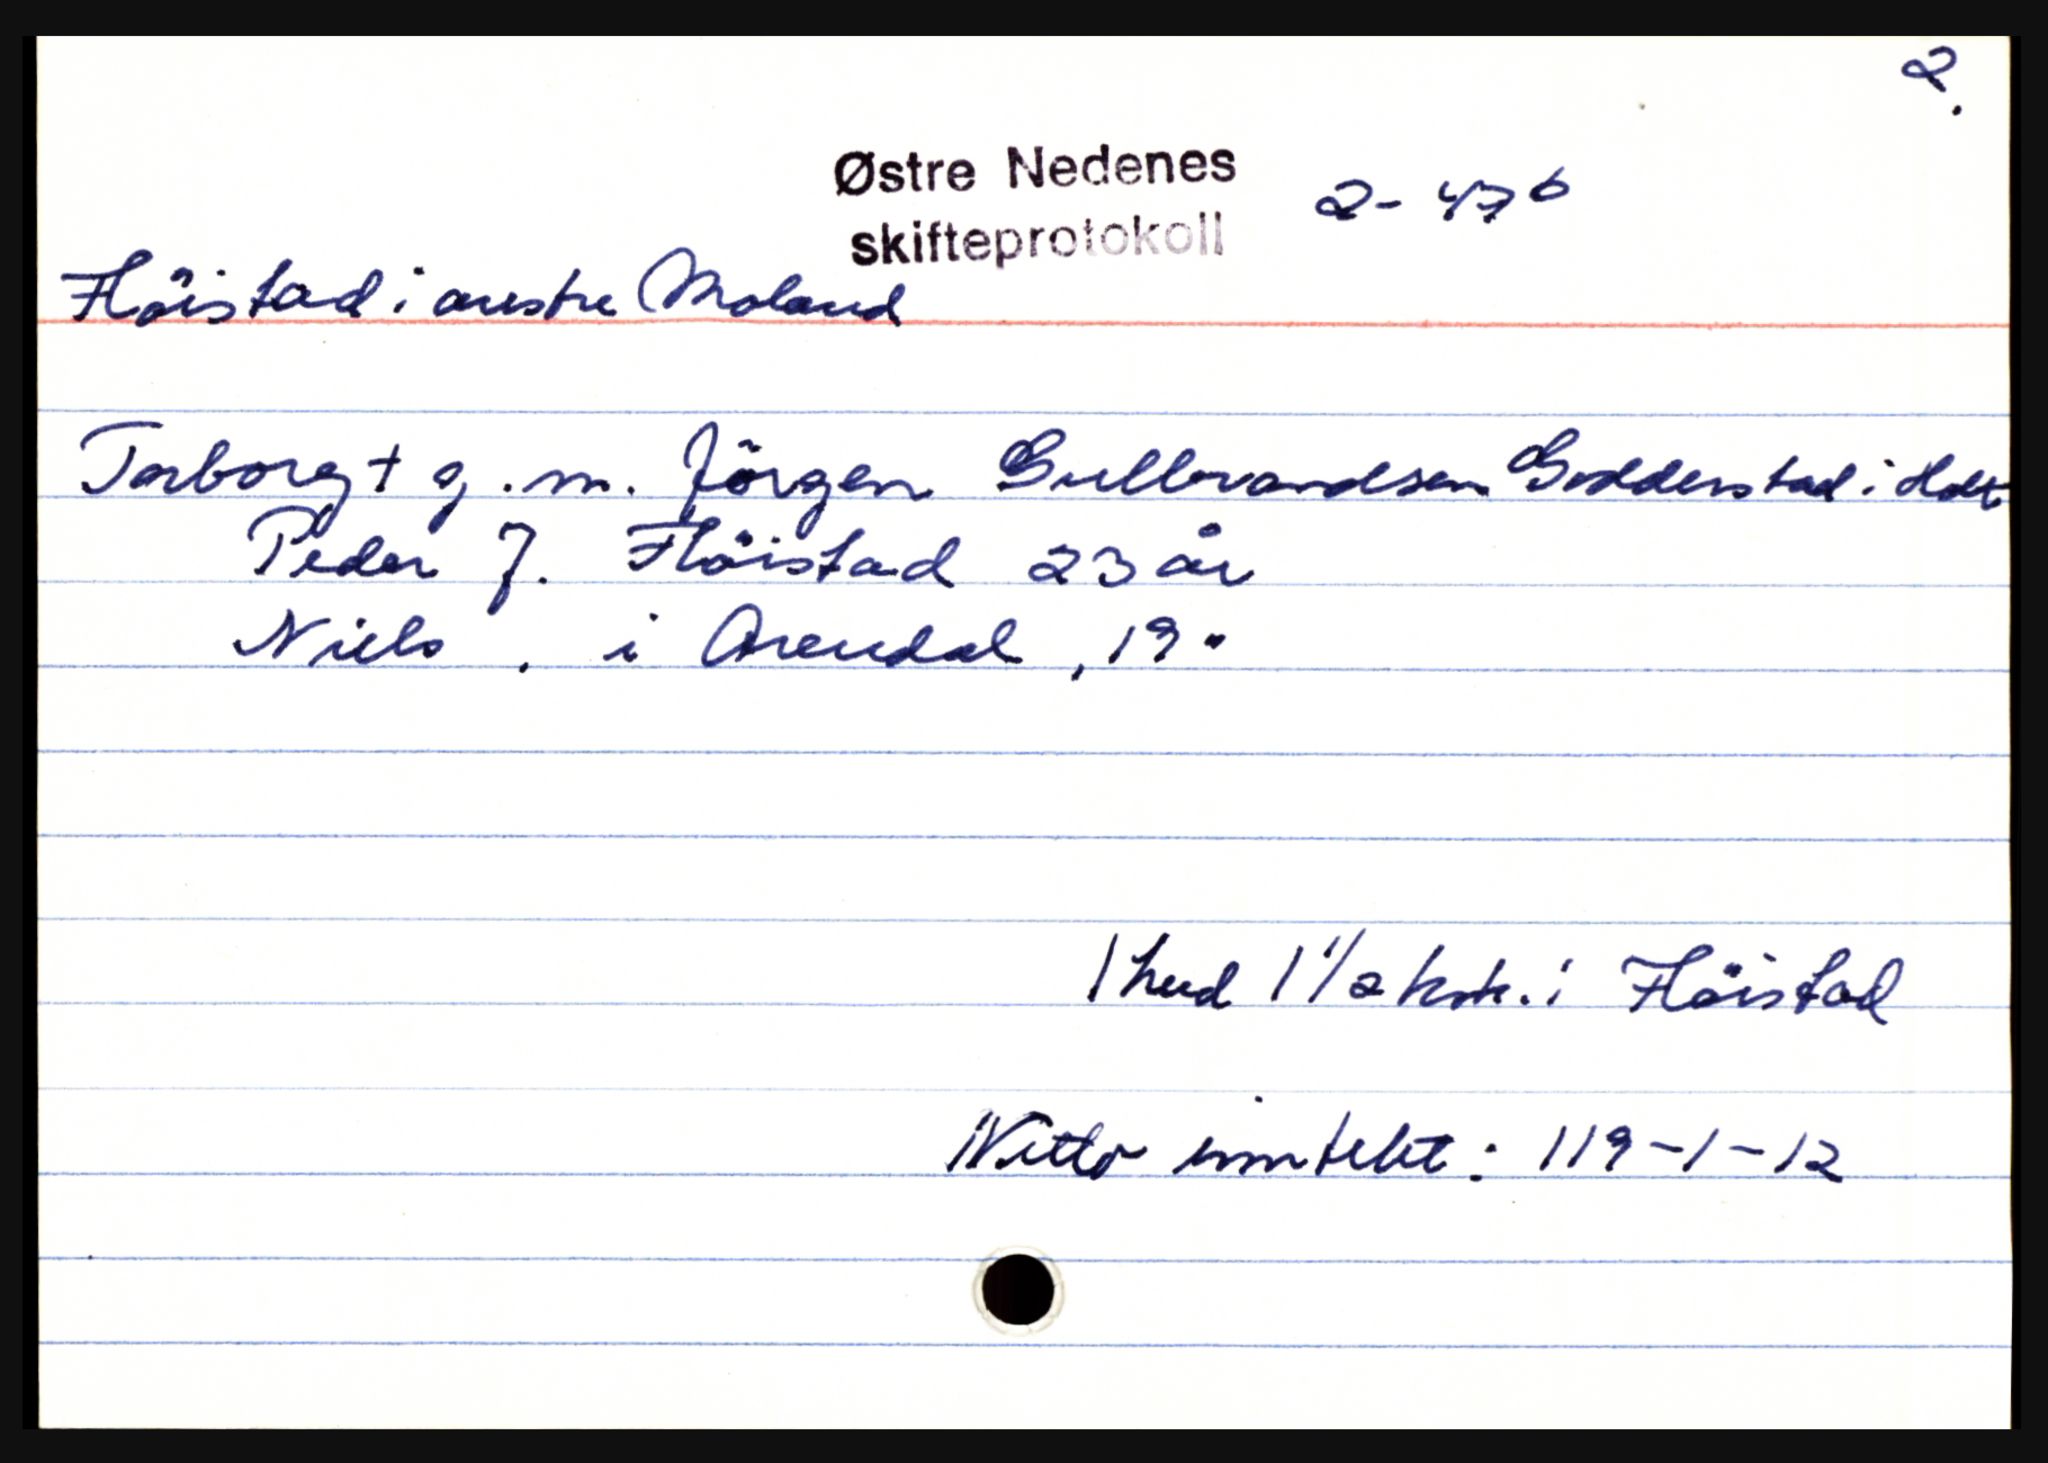 2.
Østre Nedenes
skifteprotokoll 2-47b
Flöistad i austre Moland
Torborg + g.m. Jörgen Gullbrandsen Godderstad i Holt
Peder J. Flöistad 23 år
Niels , i Arendal , 19 "
1 hud 1 1/2 ksk. i Flöistad
Netto inntekt : 119-1-12